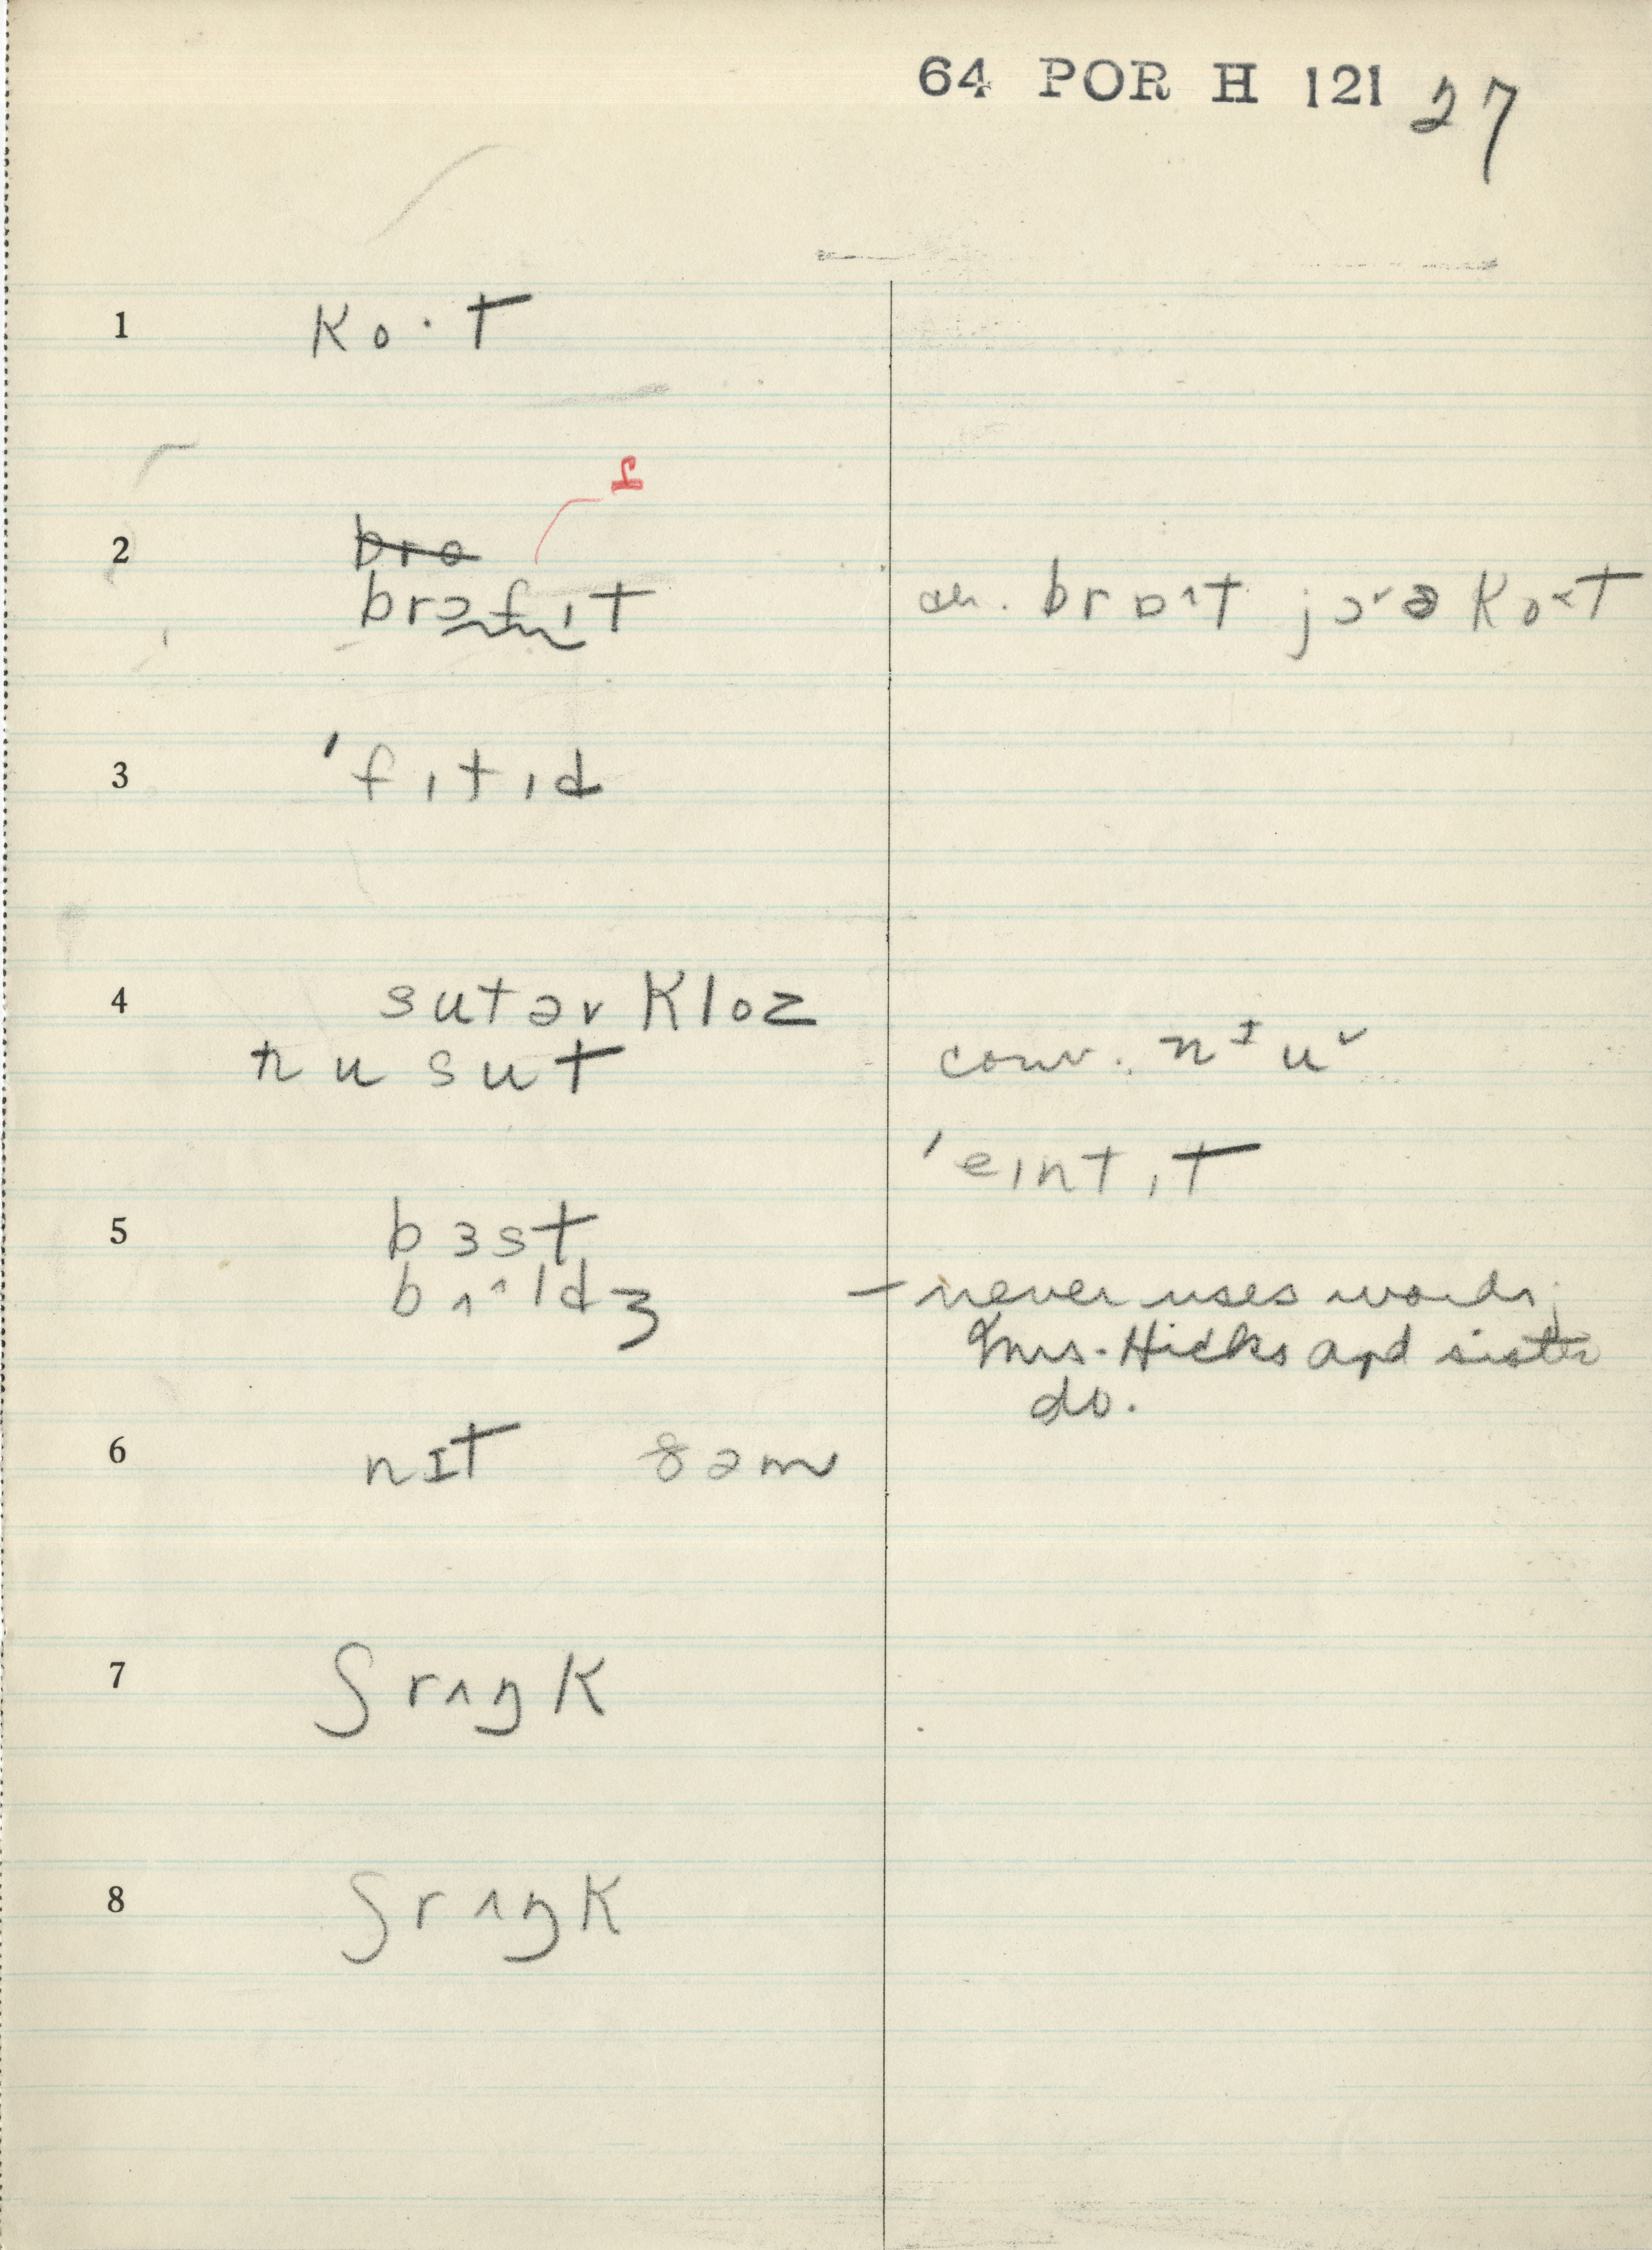 64 POR H 121 27
1 ko·t
2 bro
brɔfɪt
ɑɹ. broˑt jɔˑə koˑt
3 ˈfɪtɪd
4 sutəv kloz
nu sut
conv. nɪuˇ
ˈeɪntɪt
5 bɜst
bʌˑldʒ
– never uses words;
Mrs. Hicks and sister
do.
6 nɪt 8əm
7 ʃrʌŋk
8 ʃrʌŋk